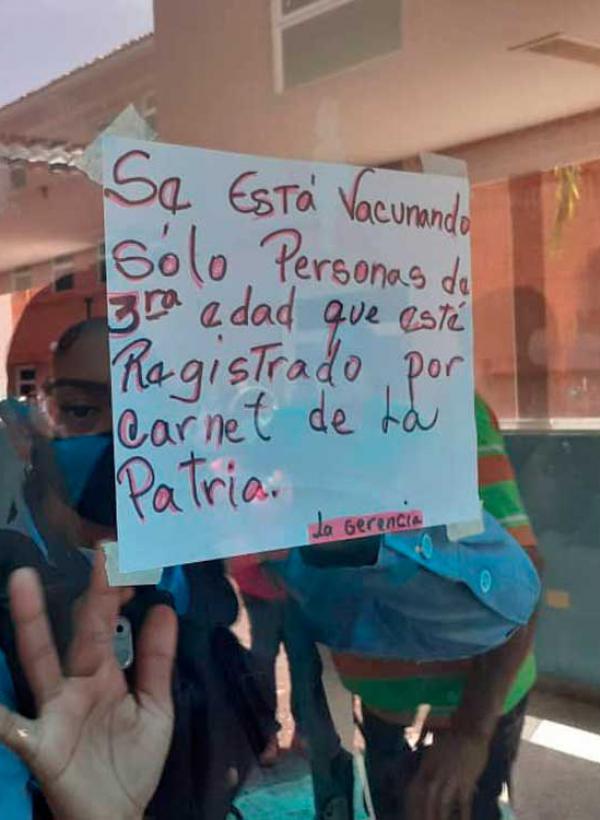 Se Está Vacunando
sólo Personas de
3ra edad que esté
Registrado por
carnet de La
Patria.
La Gerencia